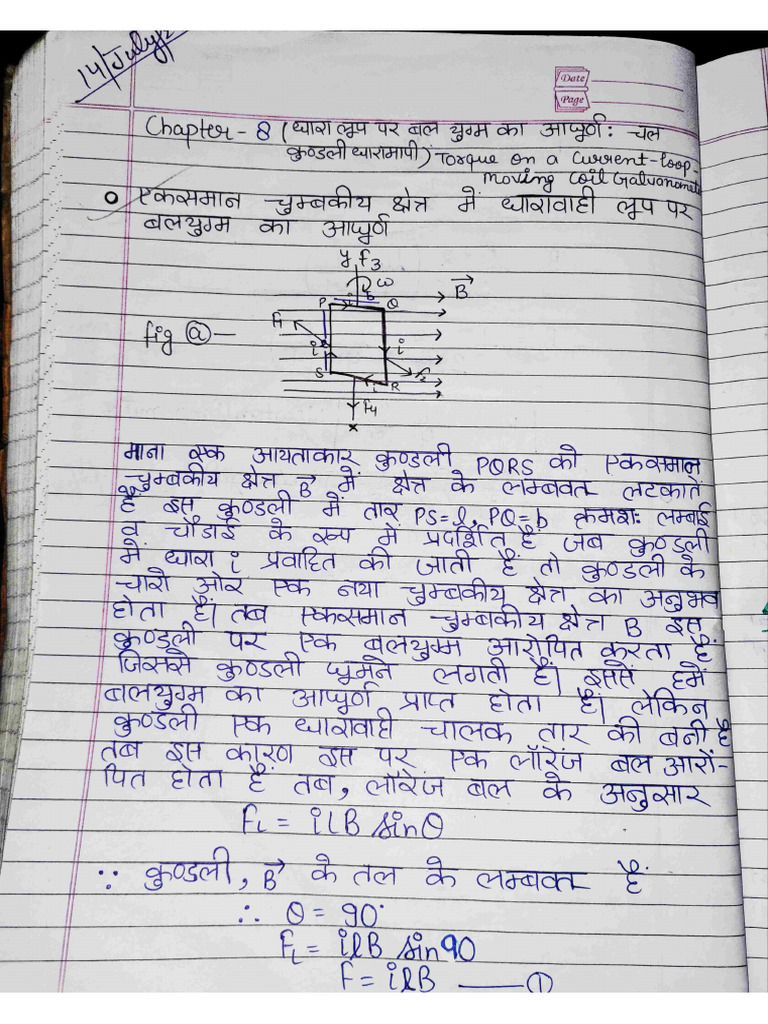 14/July/2
Date
Page
Chapter - 8 (धारा लूप पर बल युग्म का आघूर्ण: चल
कुण्डली धारामापी) Torque on a Current-loop-
moving coil Galvanomet
एकसमान चुम्बकीय क्षेत्र में धारावाही लूप पर
बलयुग्म का आघूर्ण
y F3
ω
b
B
P
Q
F1
fig ⓐ —
i
i
F2
S
i
R
F4
x
माना एक आयताकार कुण्डली PQRS को एकसमान
चुम्बकीय क्षेत्र B में क्षेत्र के लम्बवत लटकाते
हैं इस कुण्डली में तार PS=l, PQ=b क्रमशः लम्बाई
व चौडाई के रूप मे प्रदर्शित हैं जब कुण्डली
में धारा i प्रवाहित की जाती हैं तो कुण्डली के
चारो ओर एक नया चुम्बकीय क्षेत्र का अनुभव
होता हैं। तब एकसमान चुम्बकीय क्षेत्र B इस
कुण्डली पर एक बलयुग्म आरोपित करता हैं
जिससे कुण्डली घूमने लगती हैं। इससे हमें
बलयुग्म का आघूर्ण प्राप्त होता हैं। लेकिन
कुण्डली एक धारावाही चालक तार की बनी है
तब इस कारण इस पर एक लॉरेंज बल आरो-
पित होता हैं तब, लॉरेंज बल के अनुसार
FL = ilB sinθ
∵ कुण्डली, B के तल के लम्बवत हैं
∴ θ = 90°
FL = ilB sin90
F = ilB —— ①